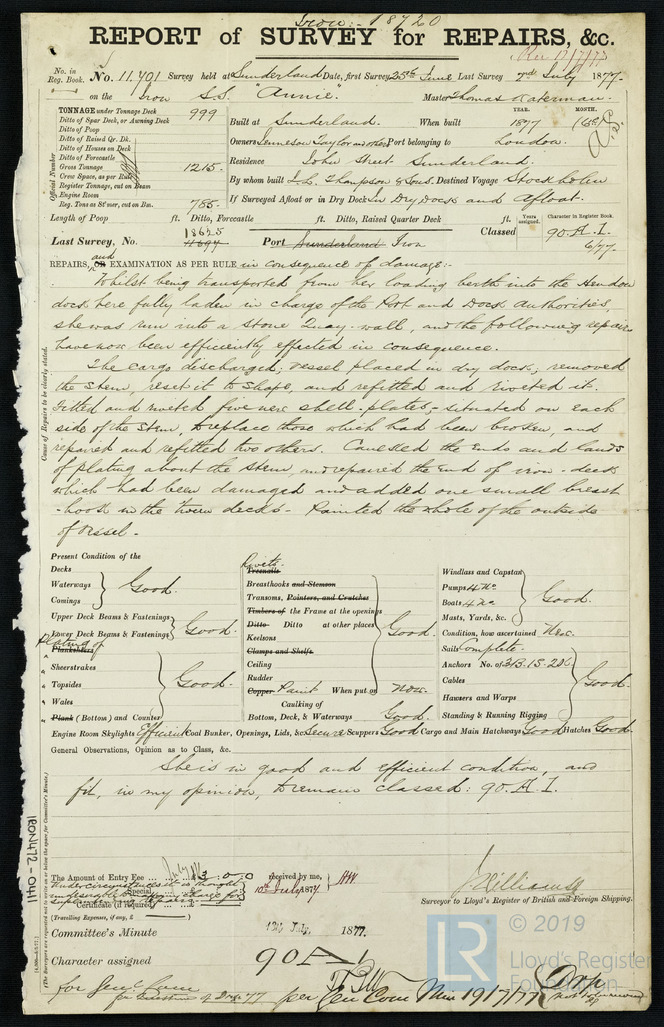 Iron 18720
REPORT of SURVEY for REPAIRS, &c.
Rec 13/7/77
No. in Reg. Book. No. 11.701 Survey held at Sunderland Date, first Survey 25th June Last Survey 7th July 1877.
on the Iron S.S. "Annie". Master Thomas Waterman.
TONNAGE under Tonnage Deck 999
Ditto of Spar Deck, or Awning Deck
Ditto of Poop
Ditto of Raised Qr. Dk.
Ditto of Houses on Deck
Ditto of Forecastle
Gross Tonnage 1215.
Crew Space, as per Rule
Register Tonnage, cut on Beam
Engine Room
Reg. Tons as St'mer, cut on Bm. 755.
Official Number
Built at Sunderland. When built YEAR. 1877 MONTH. (6)
Owners Taylor and others Port belonging to London.
Residence John Street Sunderland.
By whom built J.L. Thompson & Sons. Destined Voyage Stockholm
If Surveyed Afloat or in Dry Dock In Dry Dock and Afloat.
Length of Poop ft. Ditto, Forecastle ft. Ditto, Raised Quarter Deck ft.
Years assigned. Character in Register Book.
Last Survey, No. 18625 11694 Port Sunderland Iron Classed 90.A.1. 6/77.
REPAIRS, and OR EXAMINATION AS PER RULE in consequence of damage:-
Whilst being transported from her loading berth into the Hendon
dock here fully laden in charge of the Port and Dock Authorities,
she was run into a stone Quay-wall, and the following repairs
have now been efficiently effected in consequence.
The cargo discharged, vessel placed in dry dock; removed
the Stem, reset it to shape, and refitted and riveted it.
Fitted and riveted five new shell-plates,- situated on each
side of the Stem, to replace those which had been broken, and
repaired and refitted two others. Caulked the Ends and lands
of plating about the Stem, and repaired the end of iron-deck
which had been damaged and added one small breast
-hook in the tween decks - Painted the whole of the outside
of vessel.-
Cause of Repairs to be clearly stated.
Present Condition of the
Decks
Waterways
Comings
Good.
Upper Deck Beams & Fastenings
Lower Deck Beams & Fastenings
Good.
Plating of
Planksheers
" Sheerstrakes
" Topsides
" Wales
Plank (Bottom) and Counter
Good.
Rivets
Treenails
Breasthooks and Stemson
Transoms, Pointers, and Crutches
Timbers of the Frame at the openings
Ditto Ditto at other places
Keelsons
Clamps and Shelfs
Ceiling
Rudder
Good.
Copper Paint When put on Now.
Caulking of
Bottom, Deck, & Waterways Good.
Windlass and Capstan
Pumps 4 No
Boats 4 No
Masts, Yards, &c.
Good.
Condition, how ascertained New.
Sails Complete.
Anchors No. of 3B.1S.2K.
Cables
Hawsers and Warps
Standing & Running Rigging
Good.
Engine Room Skylights Efficient Coal Bunker, Openings, Lids, &c. Secure Scuppers Good Cargo and Main Hatchways Good Hatches Good.
General Observations, Opinion as to Class, &c.
She is in good and efficient condition, and
fit, in my opinion, to remain classed: 90.A.1.
(The Surveyors are requested not to write on or below the space for Committee's Minute.)
IRON472-0411
The Amount of Entry Fee ... £ 3:0:0 received by me,
Special
Certificate (if required)
10th July 1877
(Travelling Expenses, if any, £ )
J. Williamson
Surveyor to Lloyd's Register of British and Foreign Shipping.
Committee's Minute 13th July, 1877.
Character assigned 90A1
for Genl Com
per Gen Com Min 19/7/77
© 2019
LR Lloyd's Register Foundation